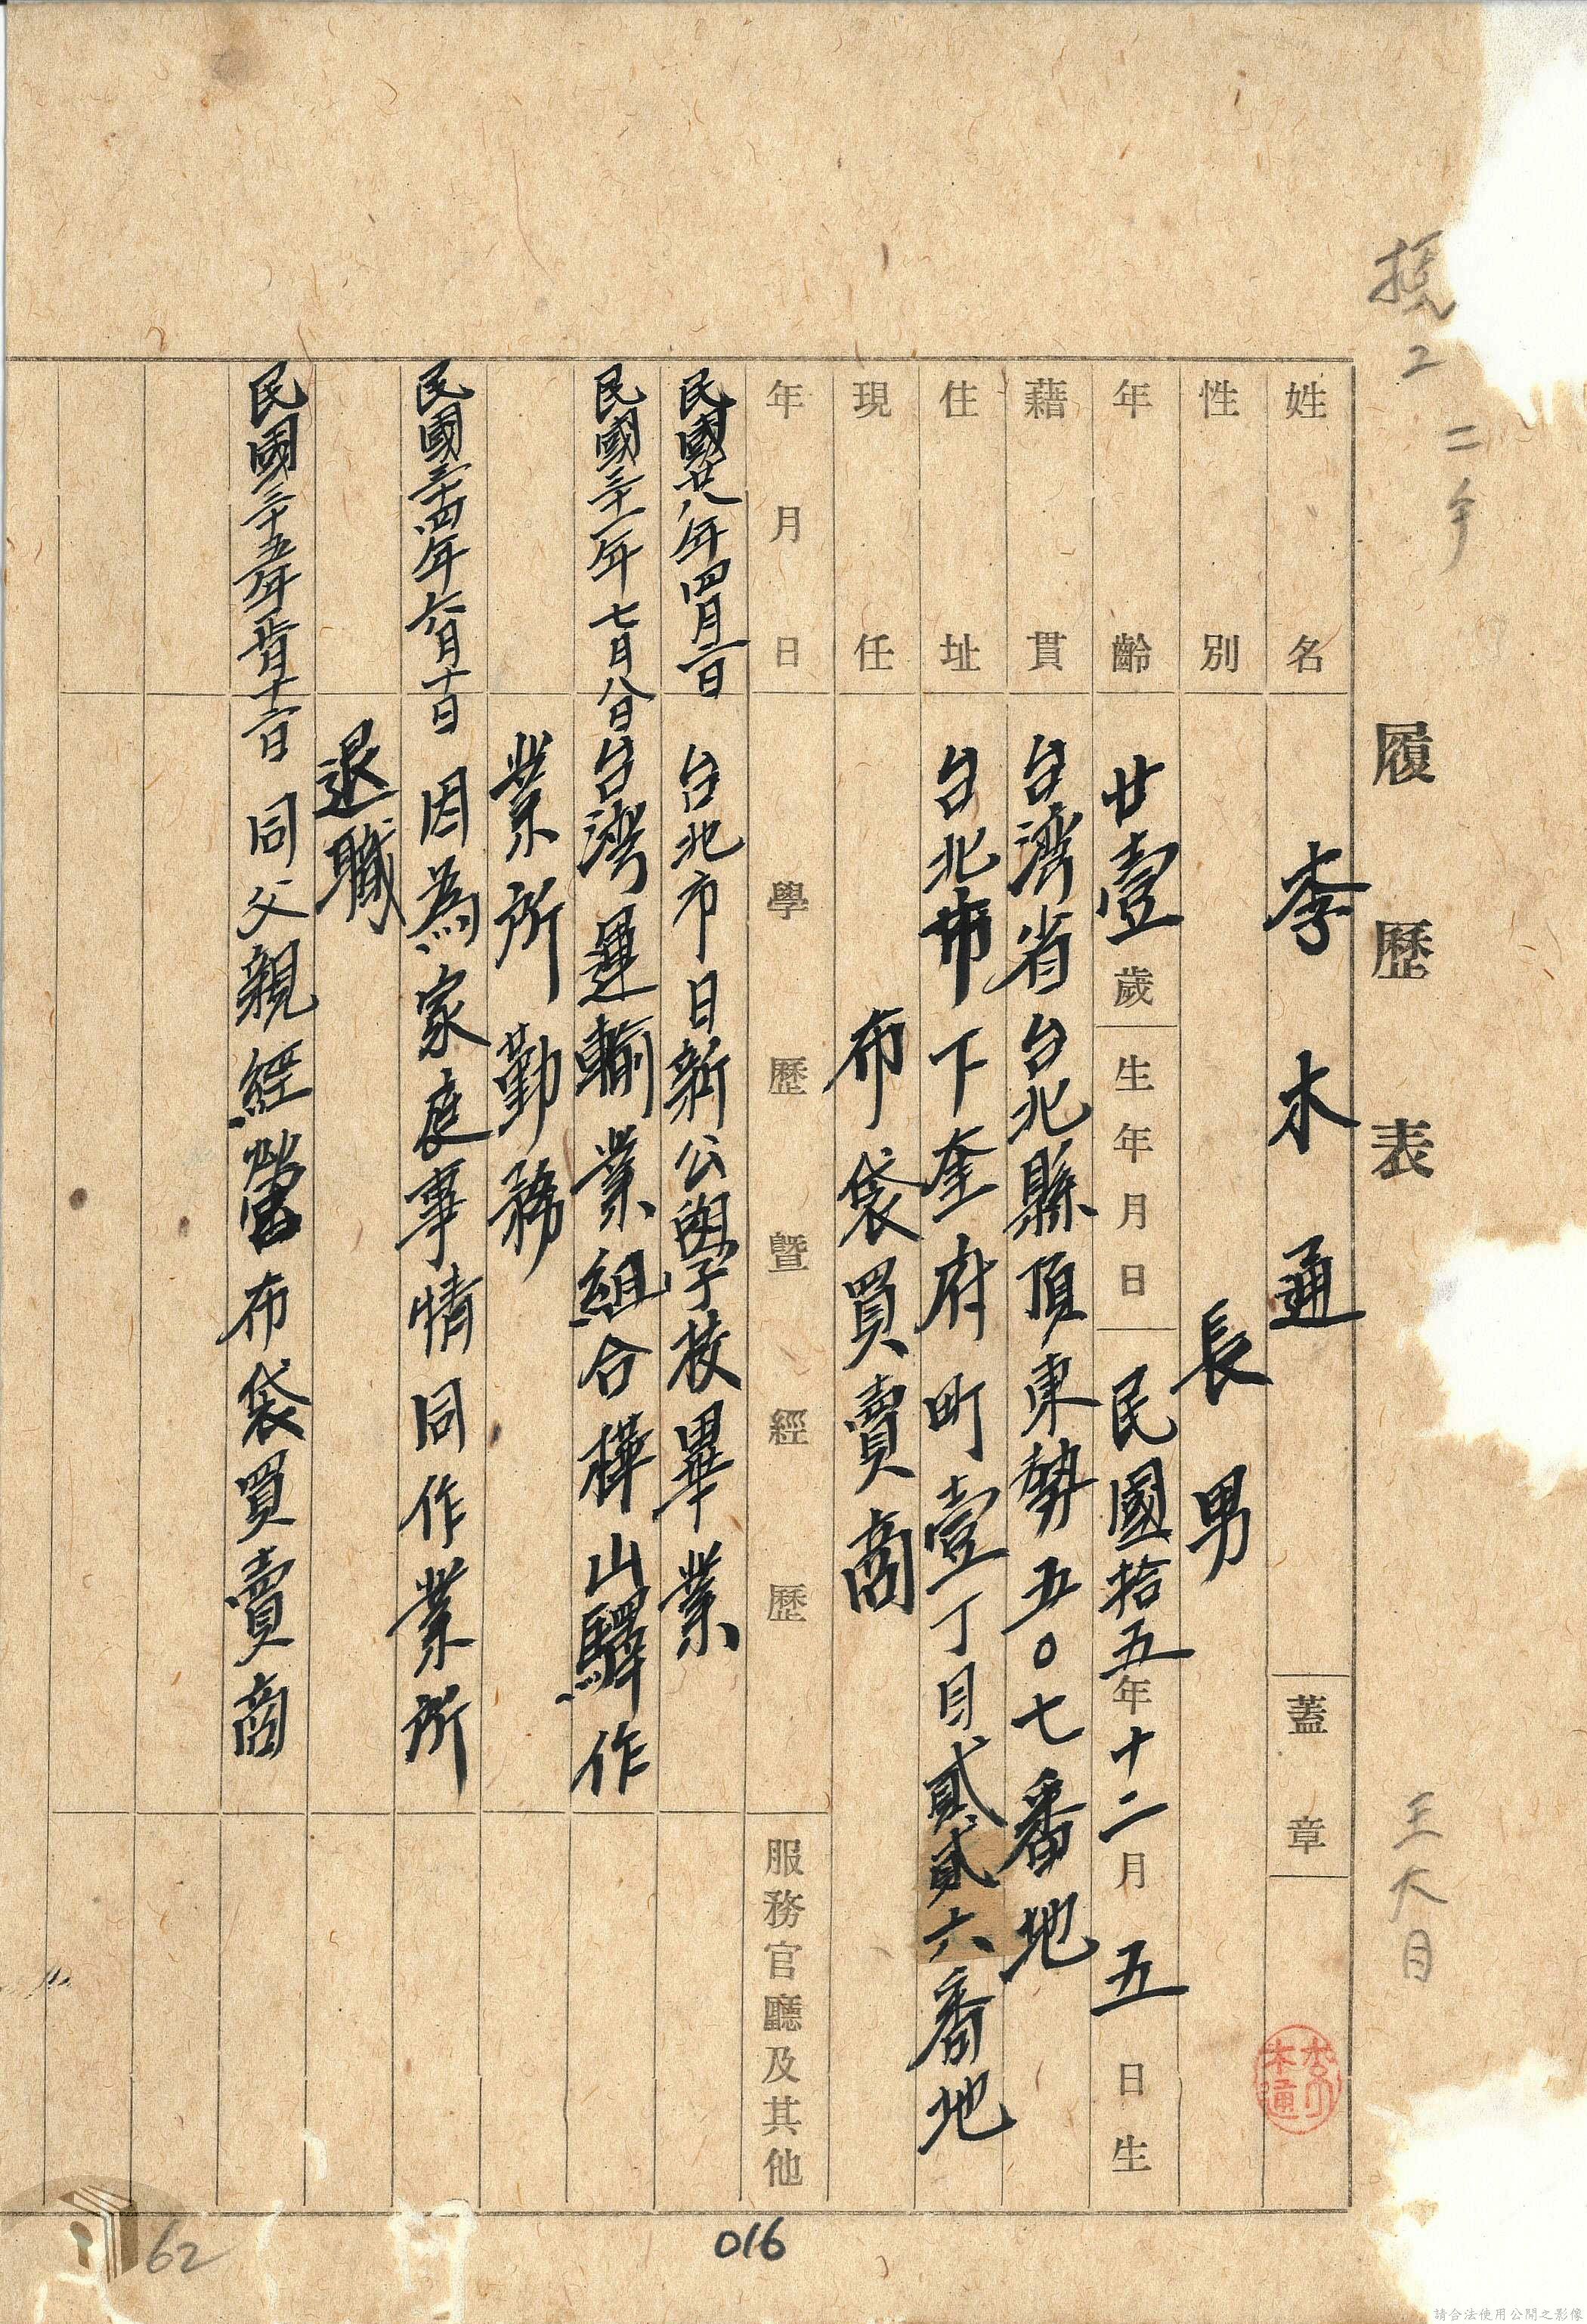 履歷表
二年
王大目
姓名 李木通 蓋章 李木通
性別 長男
年齡 廿壹歲 生年月日 民國拾五年十二月五日生
藉貫 台湾省台北縣頂東勢五〇七番地
住址 台北市下奎府町壹丁目貳貳六番地
現任 布袋買賣商
年月日 學歷暨經歷 服務官廳及其他
民國廿八年四月一日 台北市日新公學校畢業
民國三十一年七月八日 台湾運輸業組合樺山驛作
業所勤務
民國三十四年六月十日 因為家庭事情同作業所
退職
民國三十五年 同父親經營布袋買賣商
016
62
請合法使用公開之影像